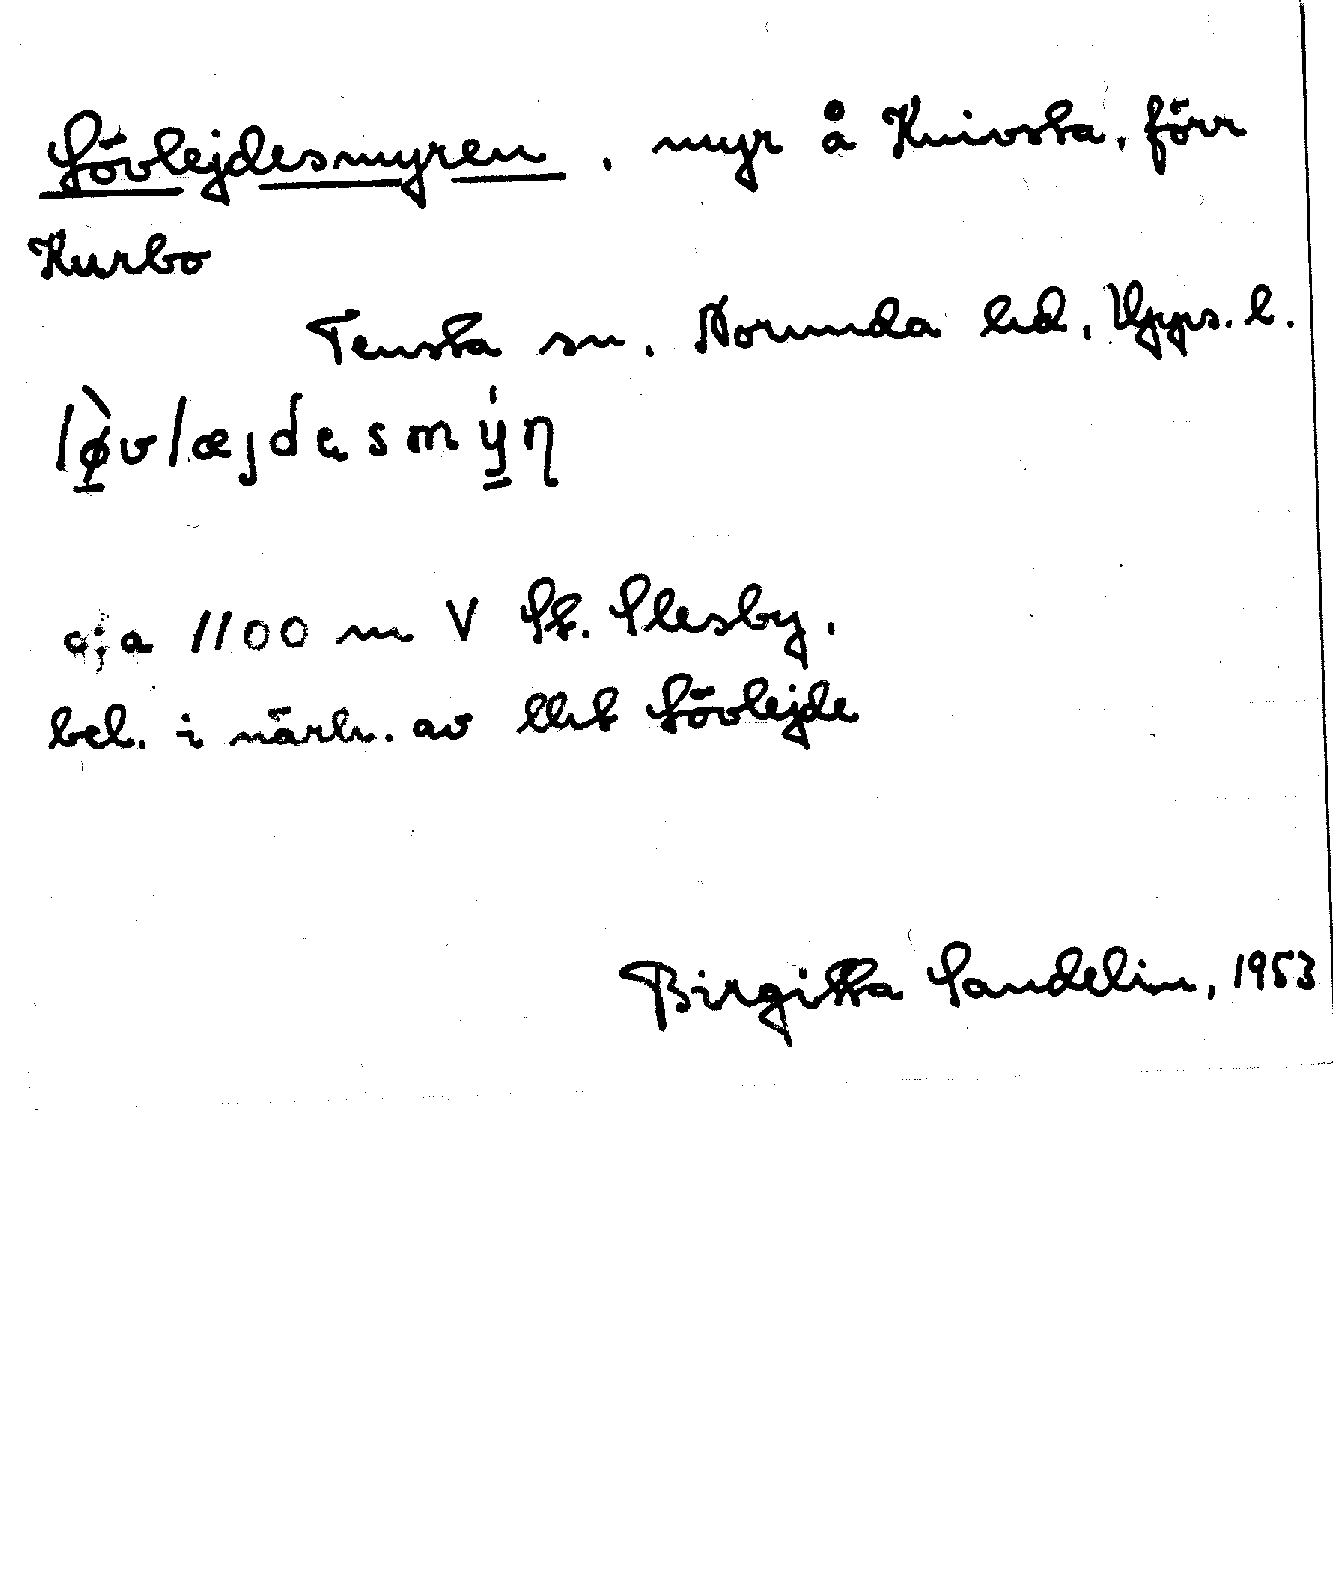 Lövlejdesmyren, myr å Knivsta, förr
Kurbo
Tensta sn, Norunda hd, Upps. l.
lø̀vlæjdesmýn
c:a 1100 m V St. Slesby,
bel. i närh. av Lövlejde
Birgitta Sandelin, 1953